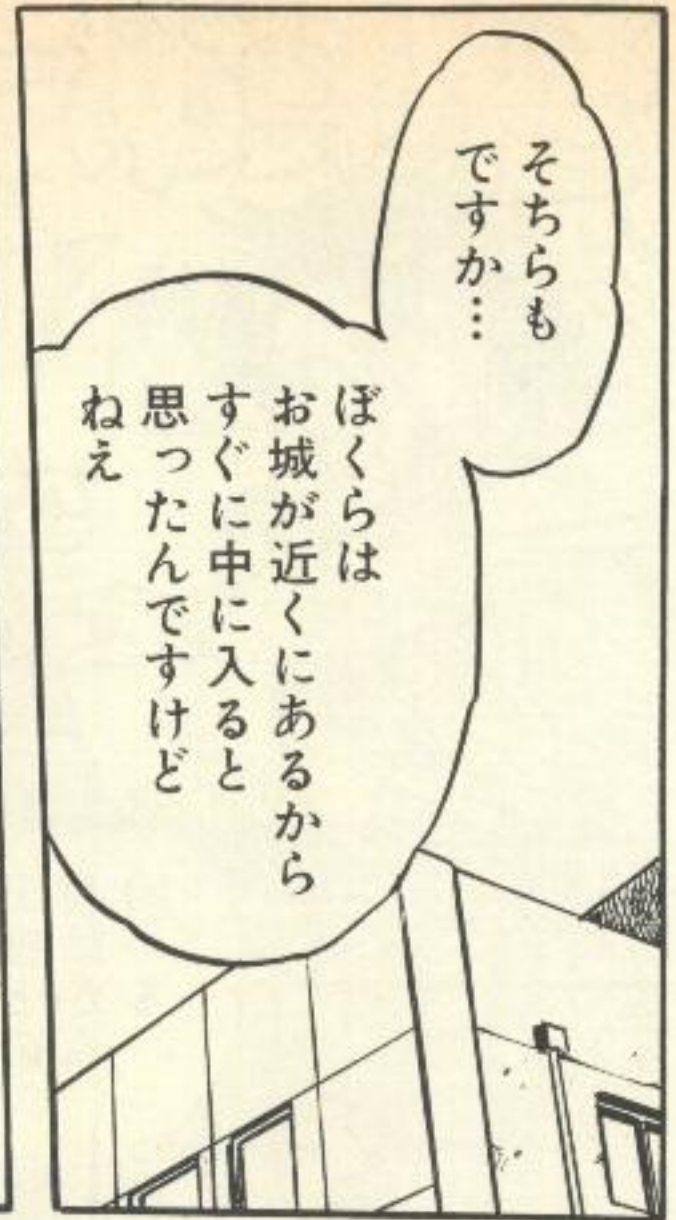 そちらも
ですか…
ぼくらは
お城が近くにあるから
すぐに中に入ると
思ったんですけど
ねえ